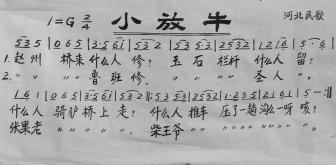 1=G 2/4 小放牛 河北民歌
5̇35 | 065 | 3·561 | 532 | 535·3 | 23532 | 1216 | 5 - |
1. 赵州 桥来什么人 修? 玉石 栏杆 什么人 留?
2. 〃 〃 〃 鲁班 修. 〃 〃 〃 〃 圣人 〃.
161 | 065 | 3·561 | 532 | 535·3 | 23532 | 1235 | 21·61 | 5 - |
什么人 骑驴 桥上走? 什么人 推车 压了一趟沟么呀咳?
张果老 〃 〃 〃 〃. 柴王爷 〃 〃 〃 〃 〃 〃 〃.